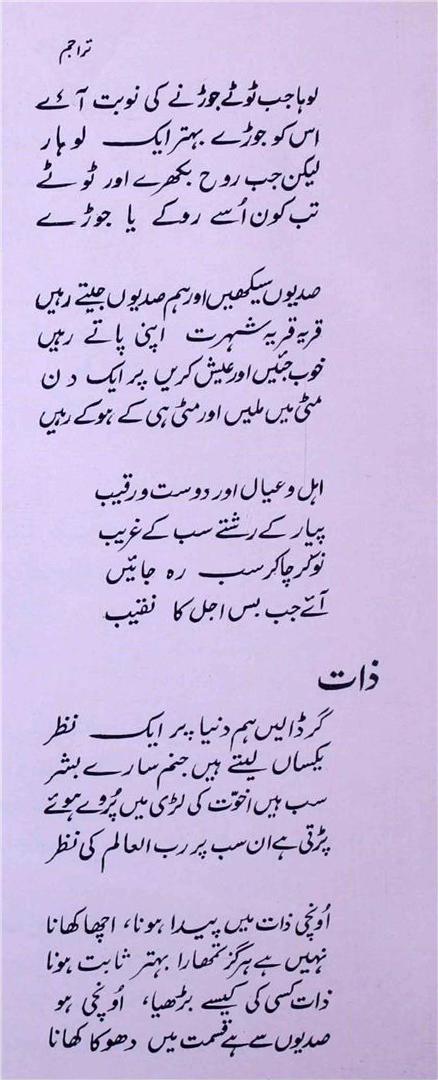 تراجم
لوہا جب ٹوٹے جوڑنے کی نوبت آئے
اس کو جوڑے بہتر ایک لوہار
لیکن جب روح بکھرے اور ٹوٹے
تب کون اُسے روکے یا جوڑے
صدیوں سیکھیں اور ہم صدیوں جیتے رہیں
قریہ قریہ شہرت اپنی پاتے رہیں
خوب جئیں اور عیش کریں پر ایک دن
مٹی میں ملیں اور مٹی ہی کے ہوکے رہیں
اہل و عیال اور دوست و رقیب
پیار کے رشتے سب کے غریب
نوکر چاکر سب رہ جائیں
آئے جب بس اجل کا نقیب
ذات
گر ڈالیں ہم دنیا پر ایک نظر
یکساں لیتے ہیں جنم سارے بشر
سب ہیں اخوّت کی لڑی میں پُروے ہوئے
پڑتی ہے ان سب پر رب العالم کی نظر
اُونچی ذات میں پیدا ہونا، اچھا کھانا
نہیں ہے ہرگز تمھارا بہتر ثابت ہونا
ذات کسی کی کیسے بڑھیا، اُونچی ہو
صدیوں سے ہے قسمت میں دھوکا کھانا